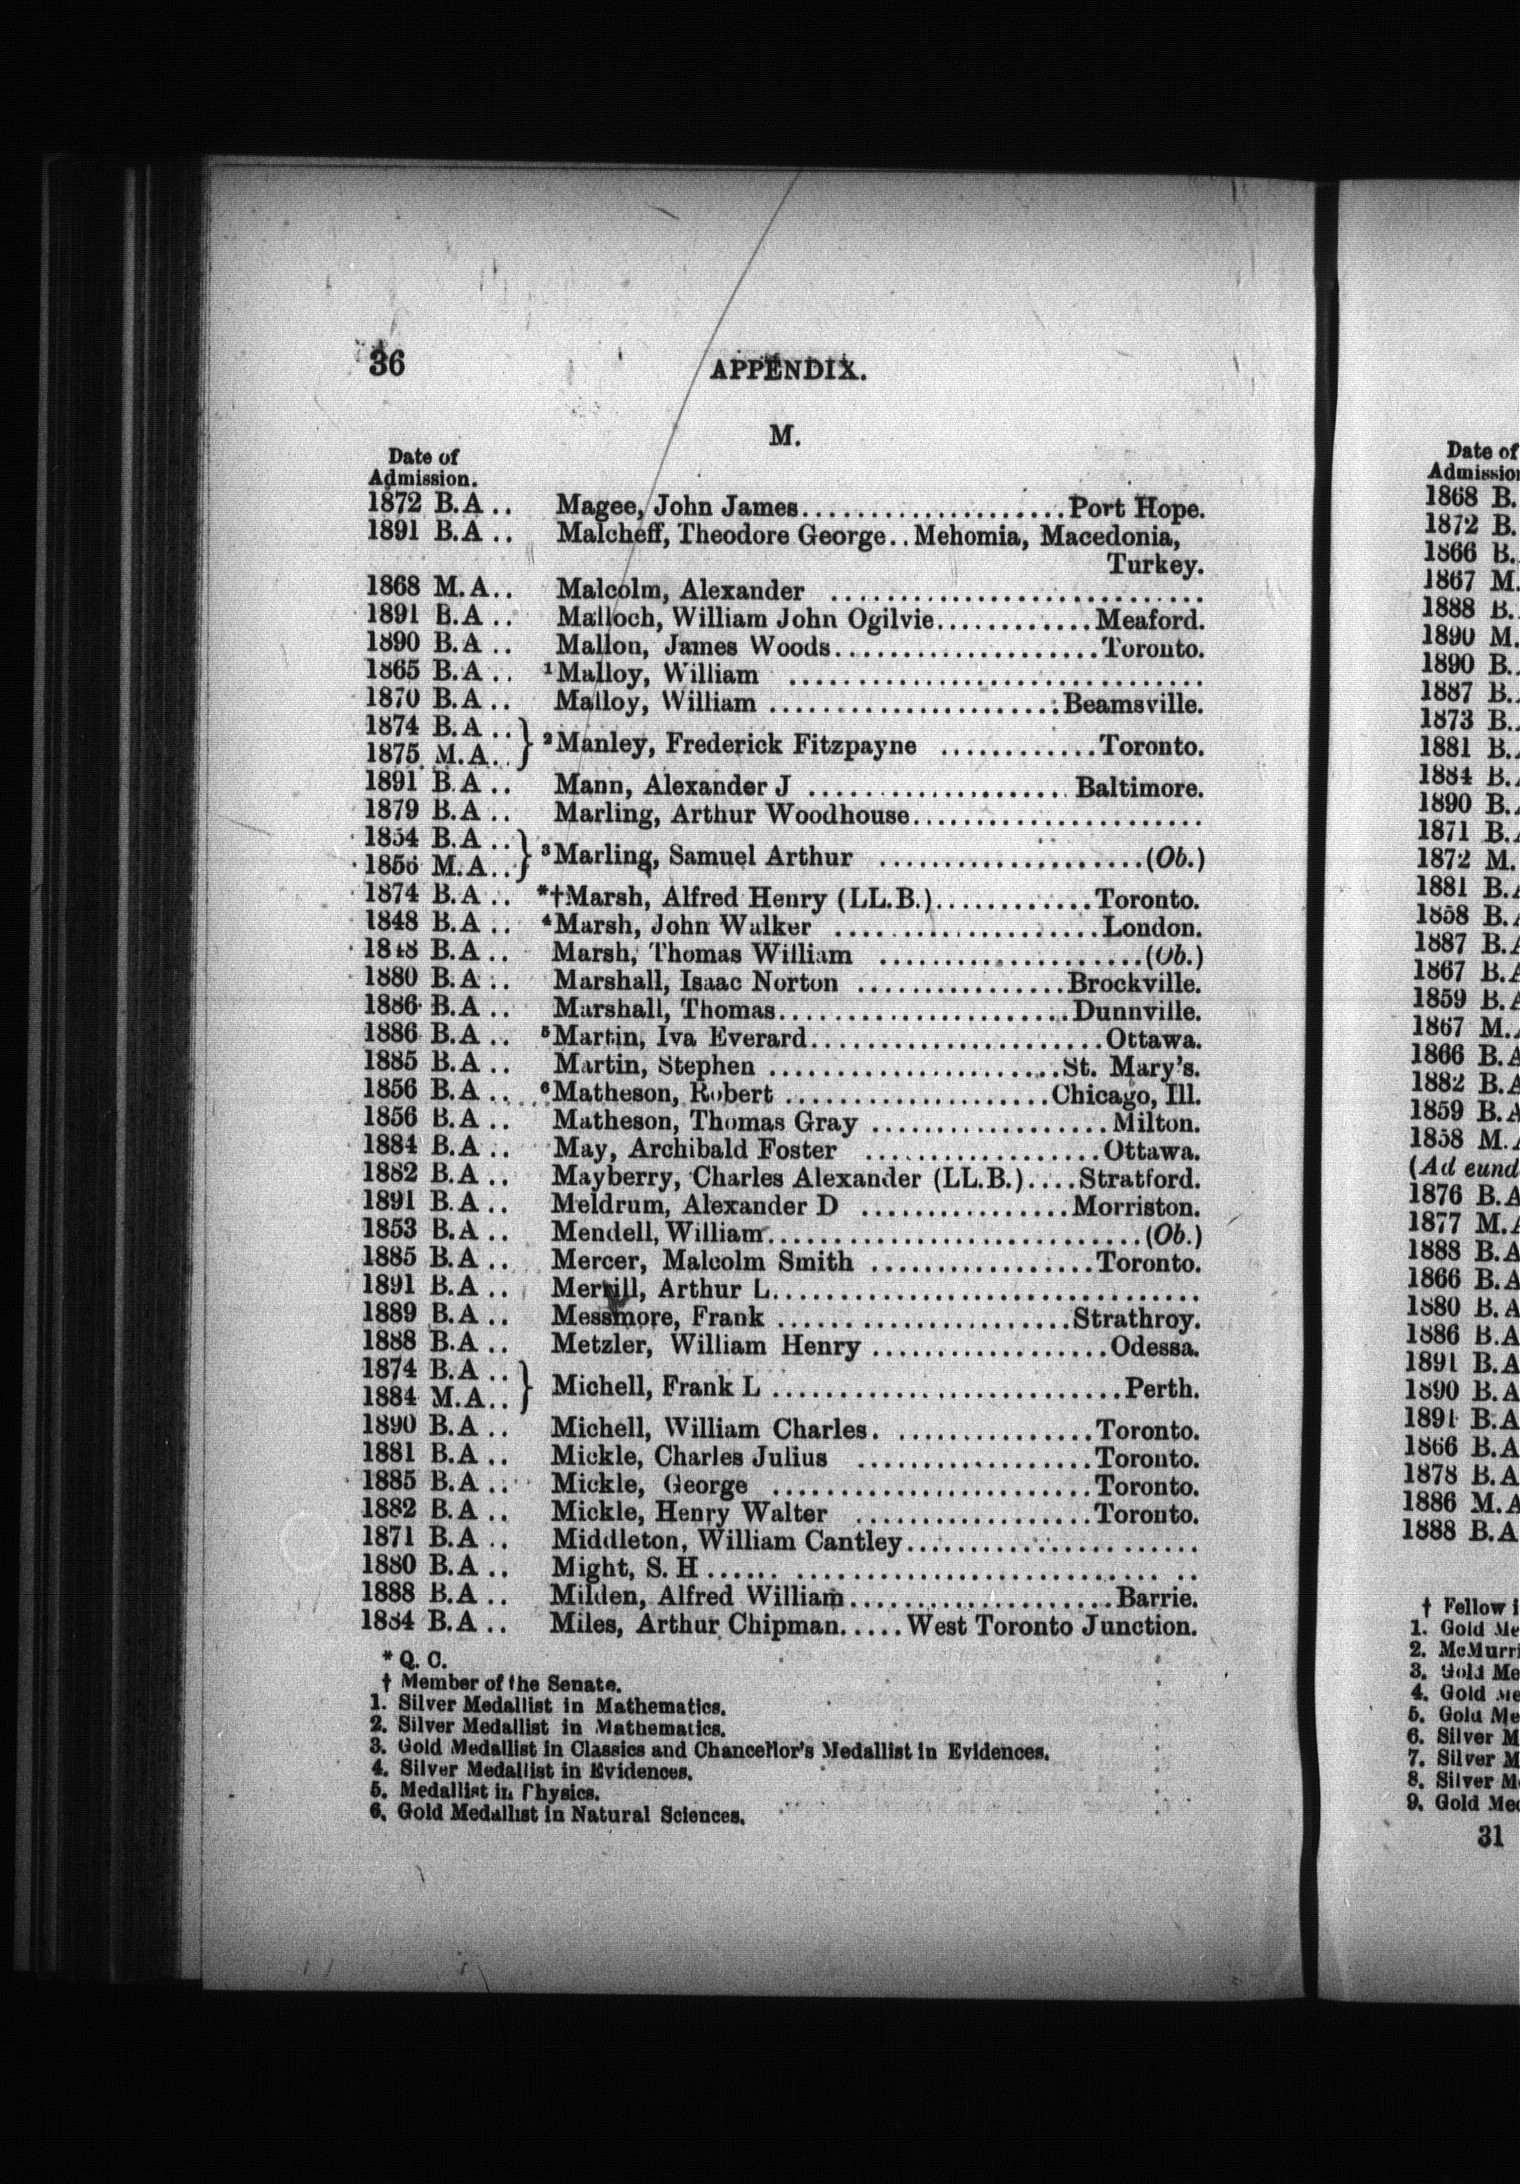 36 APPENDIX.
M.
Date of
Admission.
1872 B.A .. Magee, John James....................Port Hope.
1891 B.A .. Malcheff, Theodore George.. Mehomia, Macedonia,
Turkey.
1868 M.A.. Malcolm, Alexander ............................
1891 B.A .. Malloch, William John Ogilvie............Meaford.
1890 B.A .. Mallon, James Woods....................Toronto.
1865 B.A .. ¹Malloy, William ...............................
1870 B.A .. Malloy, William ......................Beamsville.
1874 B.A ..
1875 M.A.. } ²Manley, Frederick Fitzpayne ............Toronto.
1891 B.A .. Mann, Alexander J .................... Baltimore.
1879 B.A .. Marling, Arthur Woodhouse......................
1854 B.A ..
1856 M.A.. } ³Marling, Samuel Arthur ....................(Ob.)
1874 B.A .. *†Marsh, Alfred Henry (LL.B.)............Toronto.
1848 B.A .. ⁴Marsh, John Walker ....................London.
1848 B.A .. Marsh, Thomas William ....................(Ob.)
1880 B.A .. Marshall, Isaac Norton ................Brockville.
1886 B.A .. Marshall, Thomas......................Dunnville.
1886 B.A .. ⁵Martin, Iva Everard......................Ottawa.
1885 B.A .. Martin, Stephen ......................St. Mary's.
1856 B.A .. ⁶Matheson, Robert ....................Chicago, Ill.
1856 B.A .. Matheson, Thomas Gray ..................Milton.
1884 B.A .. May, Archibald Foster ..................Ottawa.
1882 B.A .. Mayberry, Charles Alexander (LL.B.)....Stratford.
1891 B.A .. Meldrum, Alexander D ................Morriston.
1853 B.A .. Mendell, William............................(Ob.)
1885 B.A .. Mercer, Malcolm Smith .................Toronto.
1891 B.A .. Merrill, Arthur L................................
1889 B.A .. Messmore, Frank ......................Strathroy.
1888 B.A .. Metzler, William Henry ..................Odessa.
1874 B.A ..
1884 M.A.. } Michell, Frank L ..........................Perth.
1890 B.A .. Michell, William Charles. ...............Toronto.
1881 B.A .. Mickle, Charles Julius ..................Toronto.
1885 B.A .. Mickle, George ........................Toronto.
1882 B.A .. Mickle, Henry Walter ..................Toronto.
1871 B.A .. Middleton, William Cantley......................
1880 B.A .. Might, S. H ...... ............................. ..
1888 B.A .. Milden, Alfred William....................Barrie.
1884 B.A .. Miles, Arthur Chipman.....West Toronto Junction.
* Q. C.
† Member of the Senate.
1. Silver Medallist in Mathematics.
2. Silver Medallist in Mathematics.
3. Gold Medallist in Classics and Chancellor's Medallist in Evidences.
4. Silver Medallist in Evidences.
5. Medallist in Physics.
6. Gold Medallist in Natural Sciences.
Date of
Admission
1868 B.
1872 B.
1866 B.
1867 M.
1888 B.
1890 M.
1890 B.
1887 B.
1873 B.
1881 B.
1884 B.
1890 B.
1871 B.
1872 M.
1881 B.A
1858 B.
1887 B.A
1867 B.A
1859 B.A
1867 M.
1866 B.A
1882 B.A
1859 B.A
1858 M.
(Ad eund
1876 B.A
1877 M.A
1888 B.A
1866 B.A
1880 B.A
1886 B.A
1891 B.A
1890 B.A
1891 B.A
1866 B.A
1878 B.A
1886 M.A
1888 B.A
† Fellow i
1. Gold Me
2. McMurri
3. Gold Me
4. Gold Me
5. Gold Me
6. Silver M
7. Silver M
8. Silver M
9. Gold Med
31